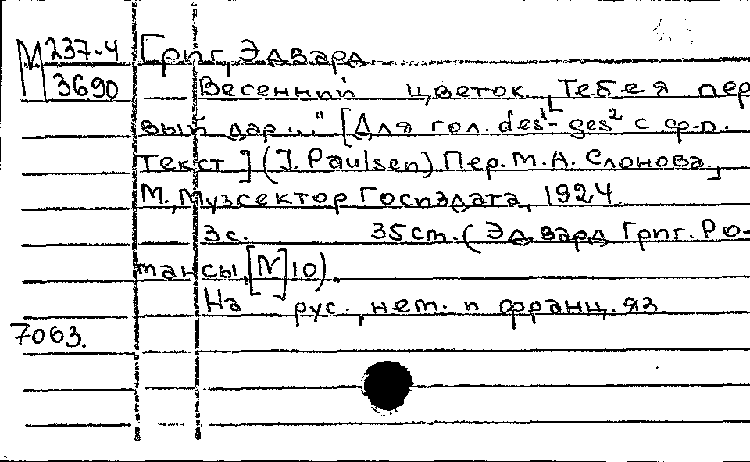 М 237-4 Григ, Эдвард
3690 Весенний цветок „Тебе я пер
вый дар..." [Для гол. des¹- ges² с ф-п.
Текст] (J. Paulsen) Пер. М. А. Слонова,
М., Музсектор Госиздата, 1924
3 с. 35 см. (Эдвард Григ. Ро-
мансы, [N]10).
На рус., нем. и франц. яз
7063.